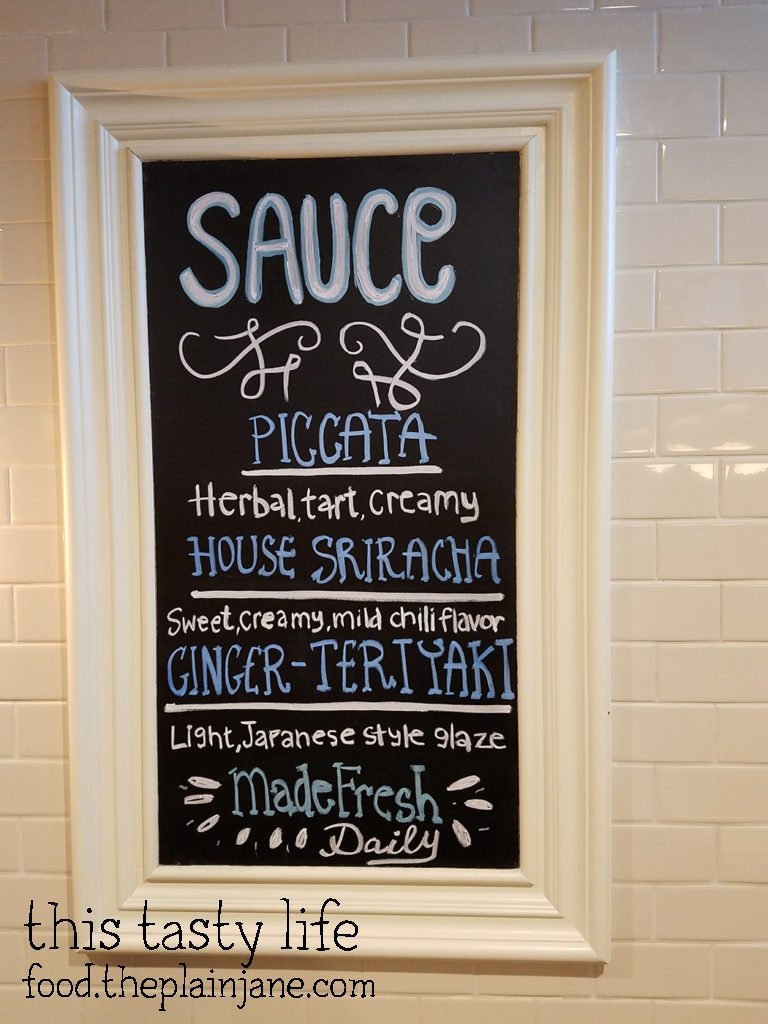 SAUCe
PICCATA
Herbal, tart, creamy
HOUSE SRIRACHA
Sweet, creamy, mild chili flavor
GINGER-TERIYAKI
Light, Japanese style glaze
made Fresh
Daily
this tasty life
food.theplainjane.com